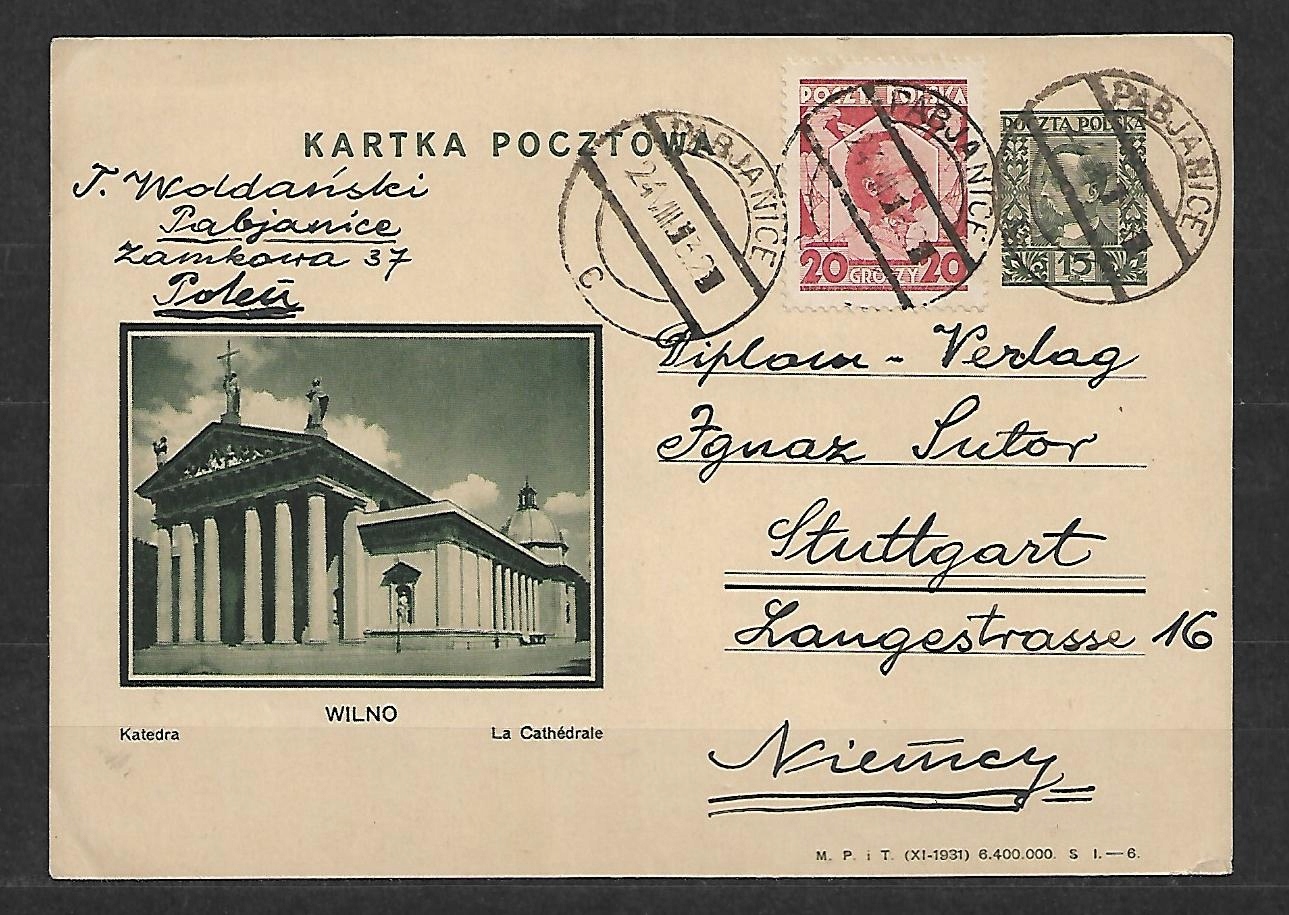 KARTKA POCZTOWA
J. Woldański
Pabjanice
Zamkowa 37
Poleń
POCZTA POLSKA
20 GROSZY 20
POCZTA POLSKA
15
PABJANICE
24 VIII
C
PABJANICE
PABJANICE
Diplom-Verlag
Ignaz Sutor
Stuttgart
Langestrasse 16
Niemcy
WILNO
Katedra
La Cathédrale
M. P. i T. (XI-1931) 6.400.000. S I.—6.